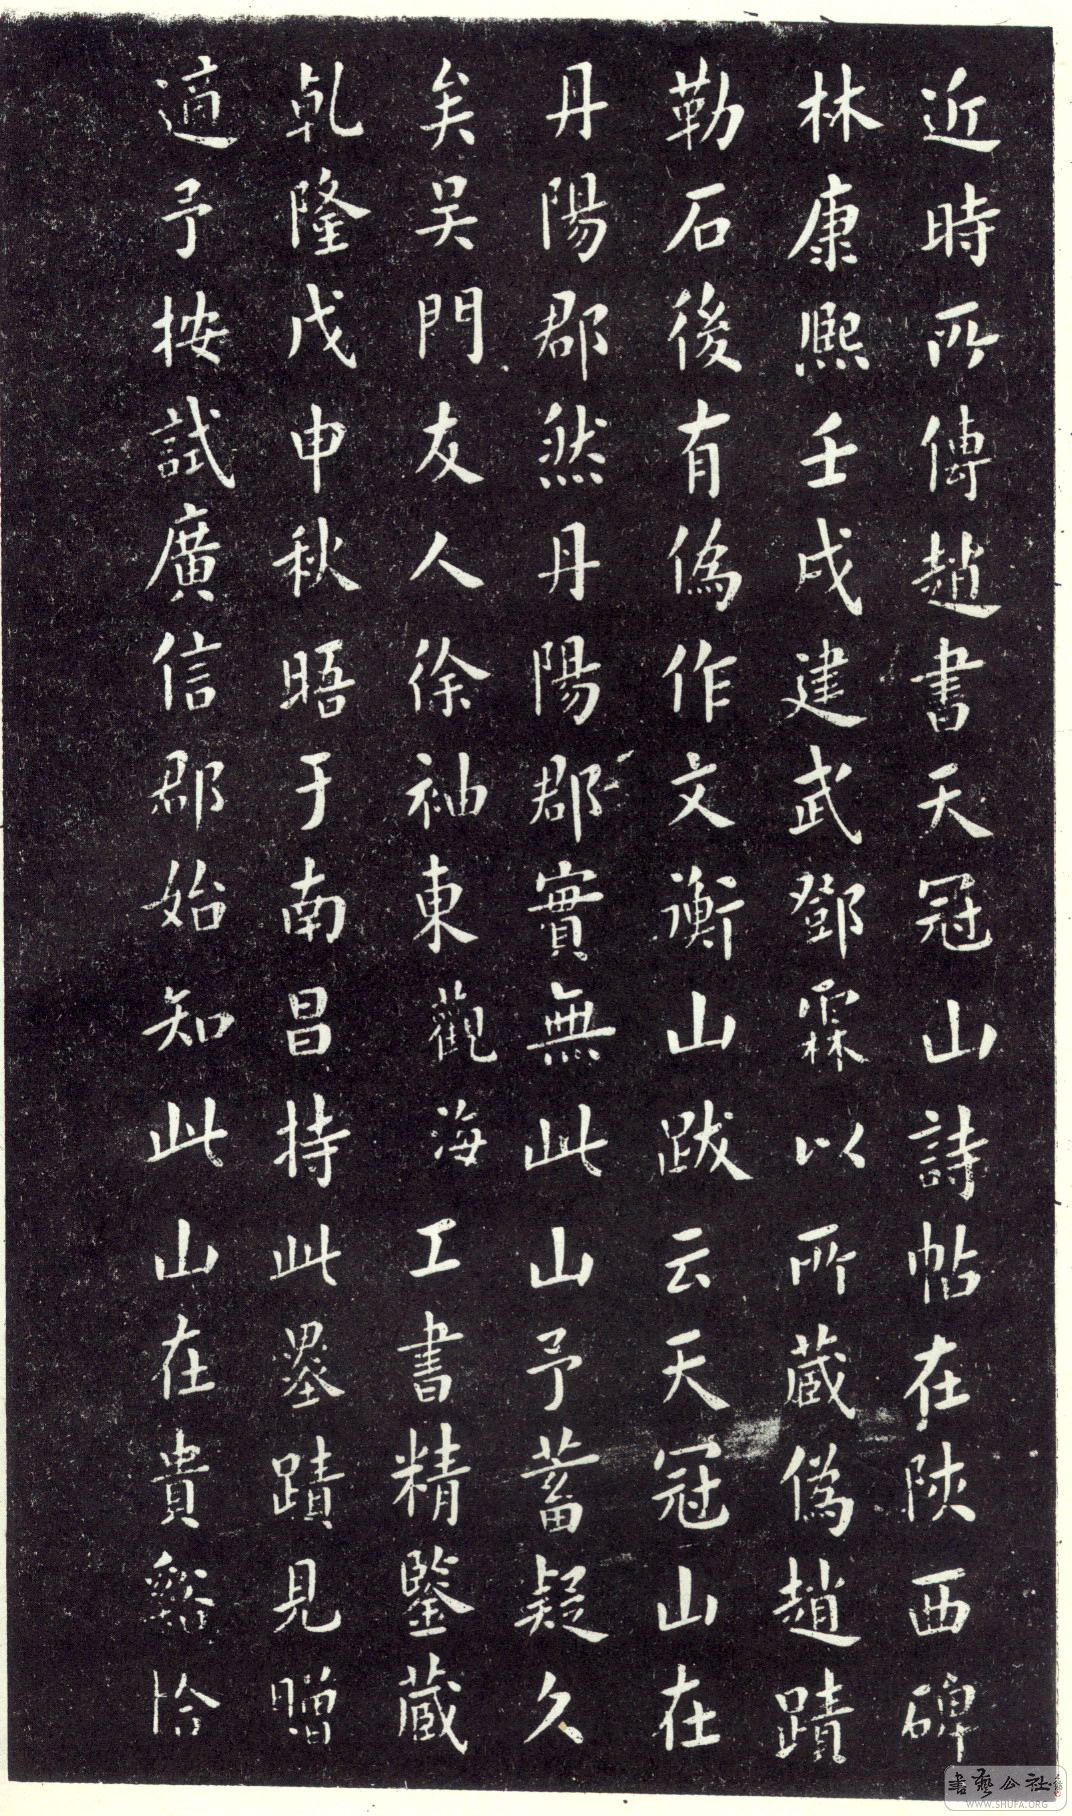 近時所傳趙書天冠山詩帖在陝西碑
林康熙壬戌建武鄧霖以所蔵偽趙蹟
勒石後有偽作文衡山跋云天冠山在
丹陽郡然丹陽郡實無此山予蓄疑久
矣吴門友人徐袖東觀海工書精鑒蔵
乾隆戊申秋晤于南昌持此墨蹟見贈
適予按試廣信郡始知此山在貴谿恰
書藝公社
WWW.SHUFA.ORG